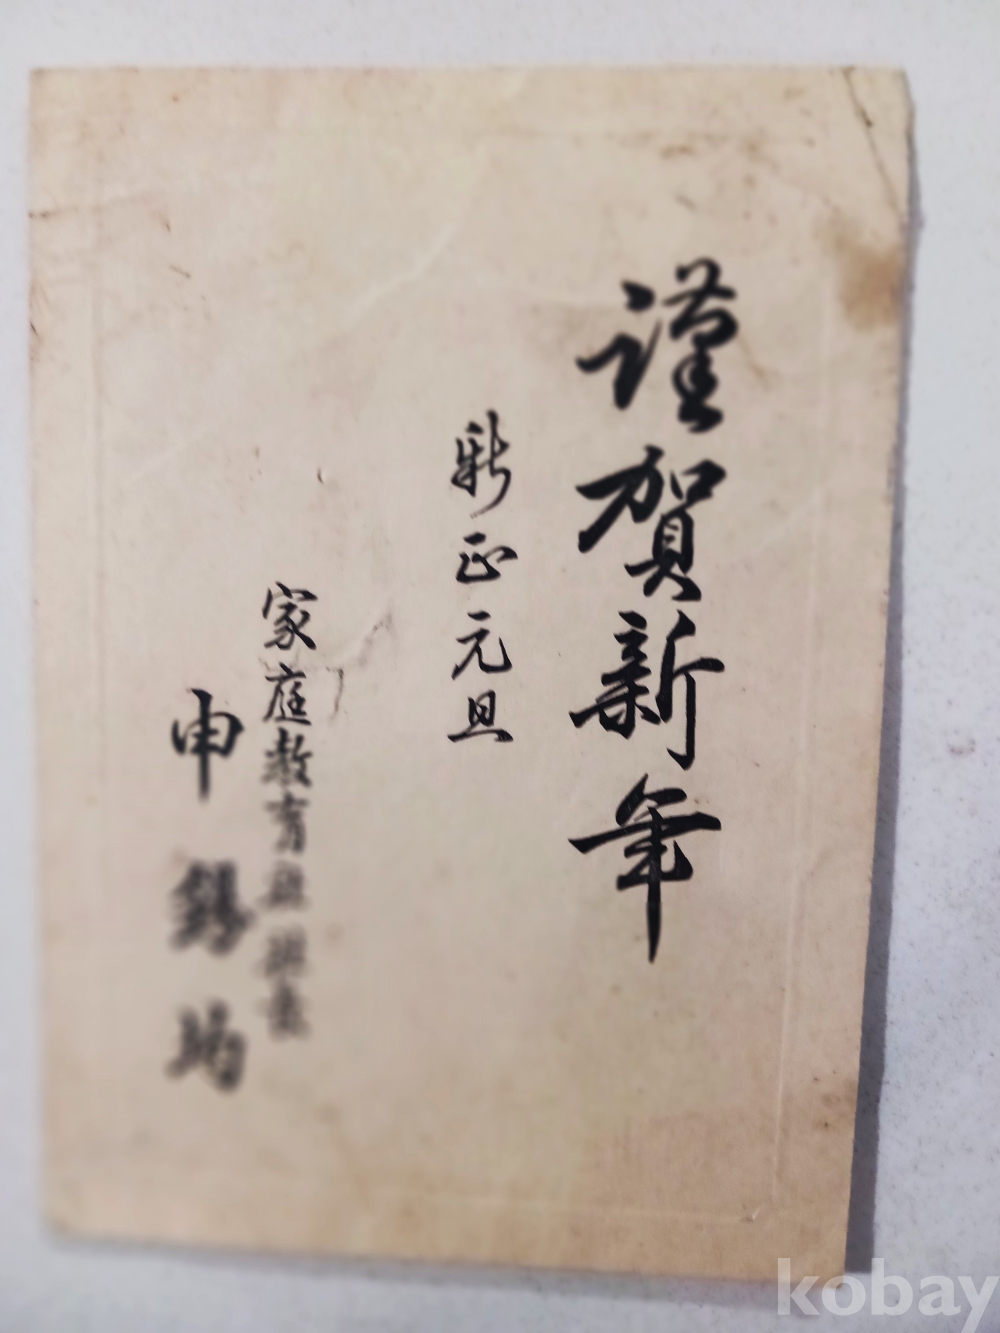 謹賀新年
新正元旦
家庭教育社 
申錫
kobay